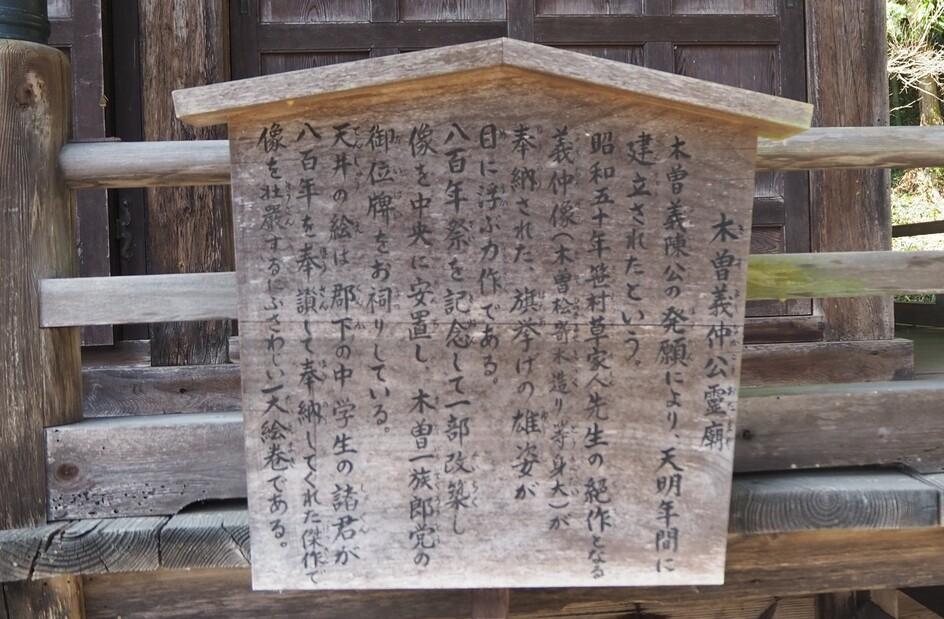 木曽義仲公霊廟
木曽義陳公の発願により、天明年間に
建立されたという。
昭和五十年笹村草家人先生の絶作となる
義仲像(木曽桧寄木造り等身大)が
奉納された、旗挙げの雄姿が
目に浮ぶ力作である。
八百年祭を記念して一部改築し
像を中央に安置し、木曽一族郎党の
御位牌をお祠りしている。
天井の絵は郡下の中学生の諸君が
八百年を奉讃して奉納してくれた傑作で
像を壮厳するにふさわしい一大絵巻である。